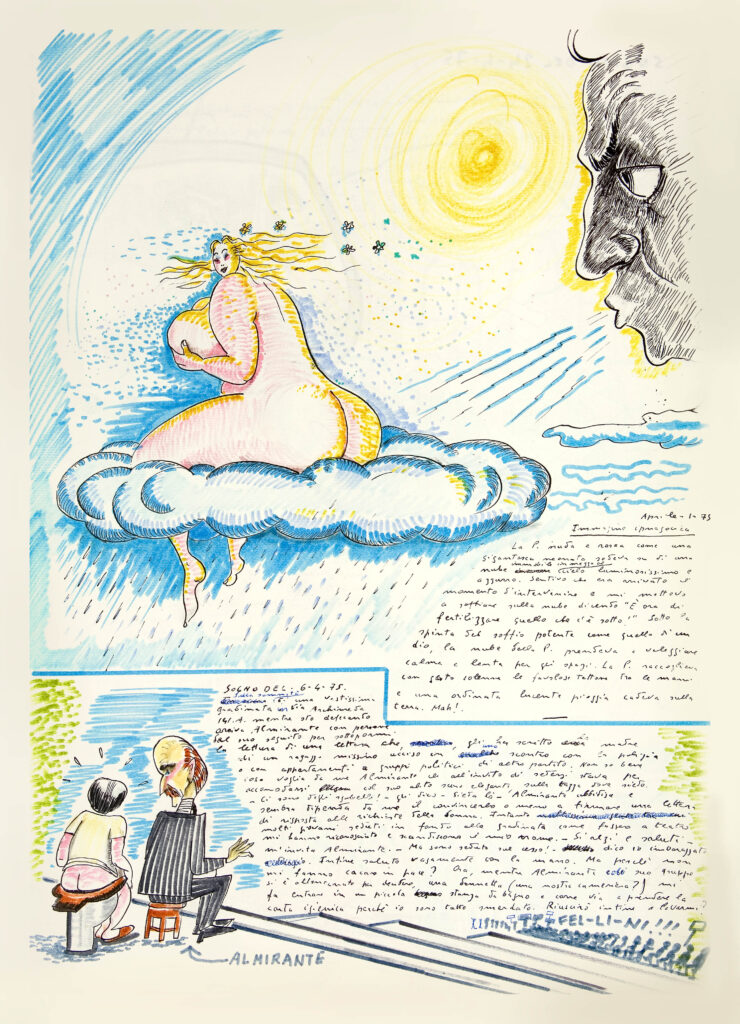 Aprile - 1 - 75
Immagine ipnagogica
La P. nuda e rosea come una
gigantesca neonata sedeva su di una
nube in mezzo al cielo luminosissimo e
azzurro. Sentivo che era arrivato il
momento d'intervenire e mi mettevo
a soffiare sulla nube dicendo "È ora di
fertilizzare quello che c'è sotto!" Sotto la
spinta del soffio potente come quello di un
dio, la nube della P. prendeva a veleggiare
calma e lenta per gli spazi. La P. raccoglieva
con gesto solenne le favolose tettone tra le mani
e una ordinata lucente pioggia cadeva sulla
terra. Mah!
SOGNO DEL. 6-4-75.
una vastissima
gradinata via Archimede
141.A. mentre sto defecando
arriva Almirante con persone
del suo seguito per sottopormi
la lettura di una lettera che gli ha scritto la madre
di un ragazzo missino ucciso in uno scontro con la polizia
o con appartenenti a gruppi politici di altro partito. Non so bene
cosa voglia da me Almirante che all'invito di sedersi stava per
accomodarsi col suo abito scuro elegante sulla tazza dove siedo
- Ci sono degli sgabelli - gli dico - Sieda lì - Almirante ubbidisce
sembra dipenda da me il convincerlo o meno a firmare una lettera
di risposta alle richieste della donna. Intanto
molti giovani seduti in fondo alla gradinata come fossero a teatro
mi hanno riconosciuto e scandiscono il mio nome. - Si alzi e saluti -
m'invita Almirante. - Ma sono seduto sul cesso! - dico io imbarazzato
Infine saluto vagamente con la mano. Ma perché non
mi fanno cacare in pace? Ora, mentre Almirante col suo gruppo
si è allontanato per decidere, una donnetta (una nostra cameriera?) mi
fa entrare in una piccola stanza da bagno e corre via a prendere la
carta igienica perché io sono tutto smerdato. Riuscirò infine a lavarmi?
FEL-LI-NI!!!
ALMIRANTE